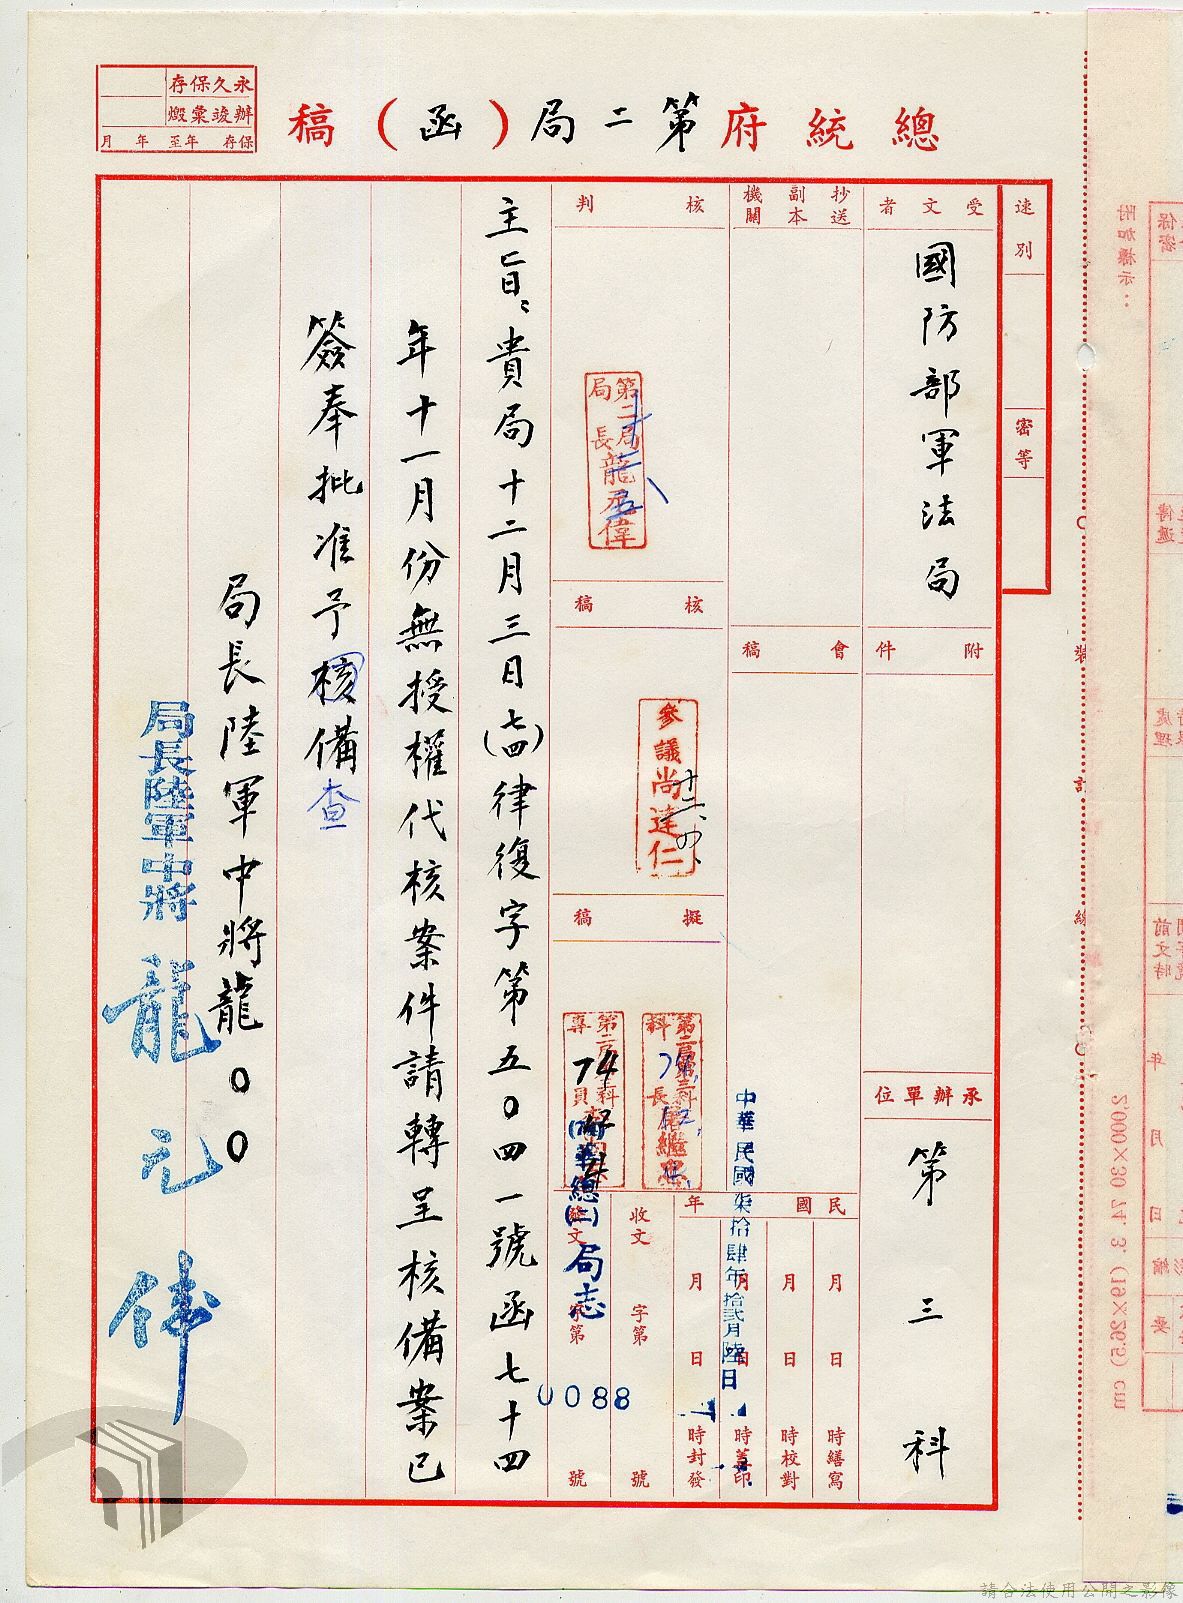 總統府第二局(函)稿
永久保存
辦竣彙燬
保存 年至 年 月
速別
密等
受文者
國防部軍法局
抄送副本機關
附件
會稿
核判
第二局局長龍元偉
核稿
參議尚達仁
十二、四、
擬稿
74
承辦單位
第三科
中華民國柒拾肆年拾貳月陸日
民國 年
月 日 時繕寫
月 日 時校對
月 日 時蓋印
月 日 時封發
收文 字第 號
發文 字第 號
(74)華總(二)局志
0088
主旨:貴局十二月三日(七四)律復字第五0四一號函七十四
年十一月份無授權代核案件請轉呈核備案已
簽奉批准予核備
查
局長陸軍中將龍00
局長陸軍中將 龍元偉
裝 訂 線
附加標示:
2,000×30 74. 3. (19×26.5) cm
請合法使用公開之影像